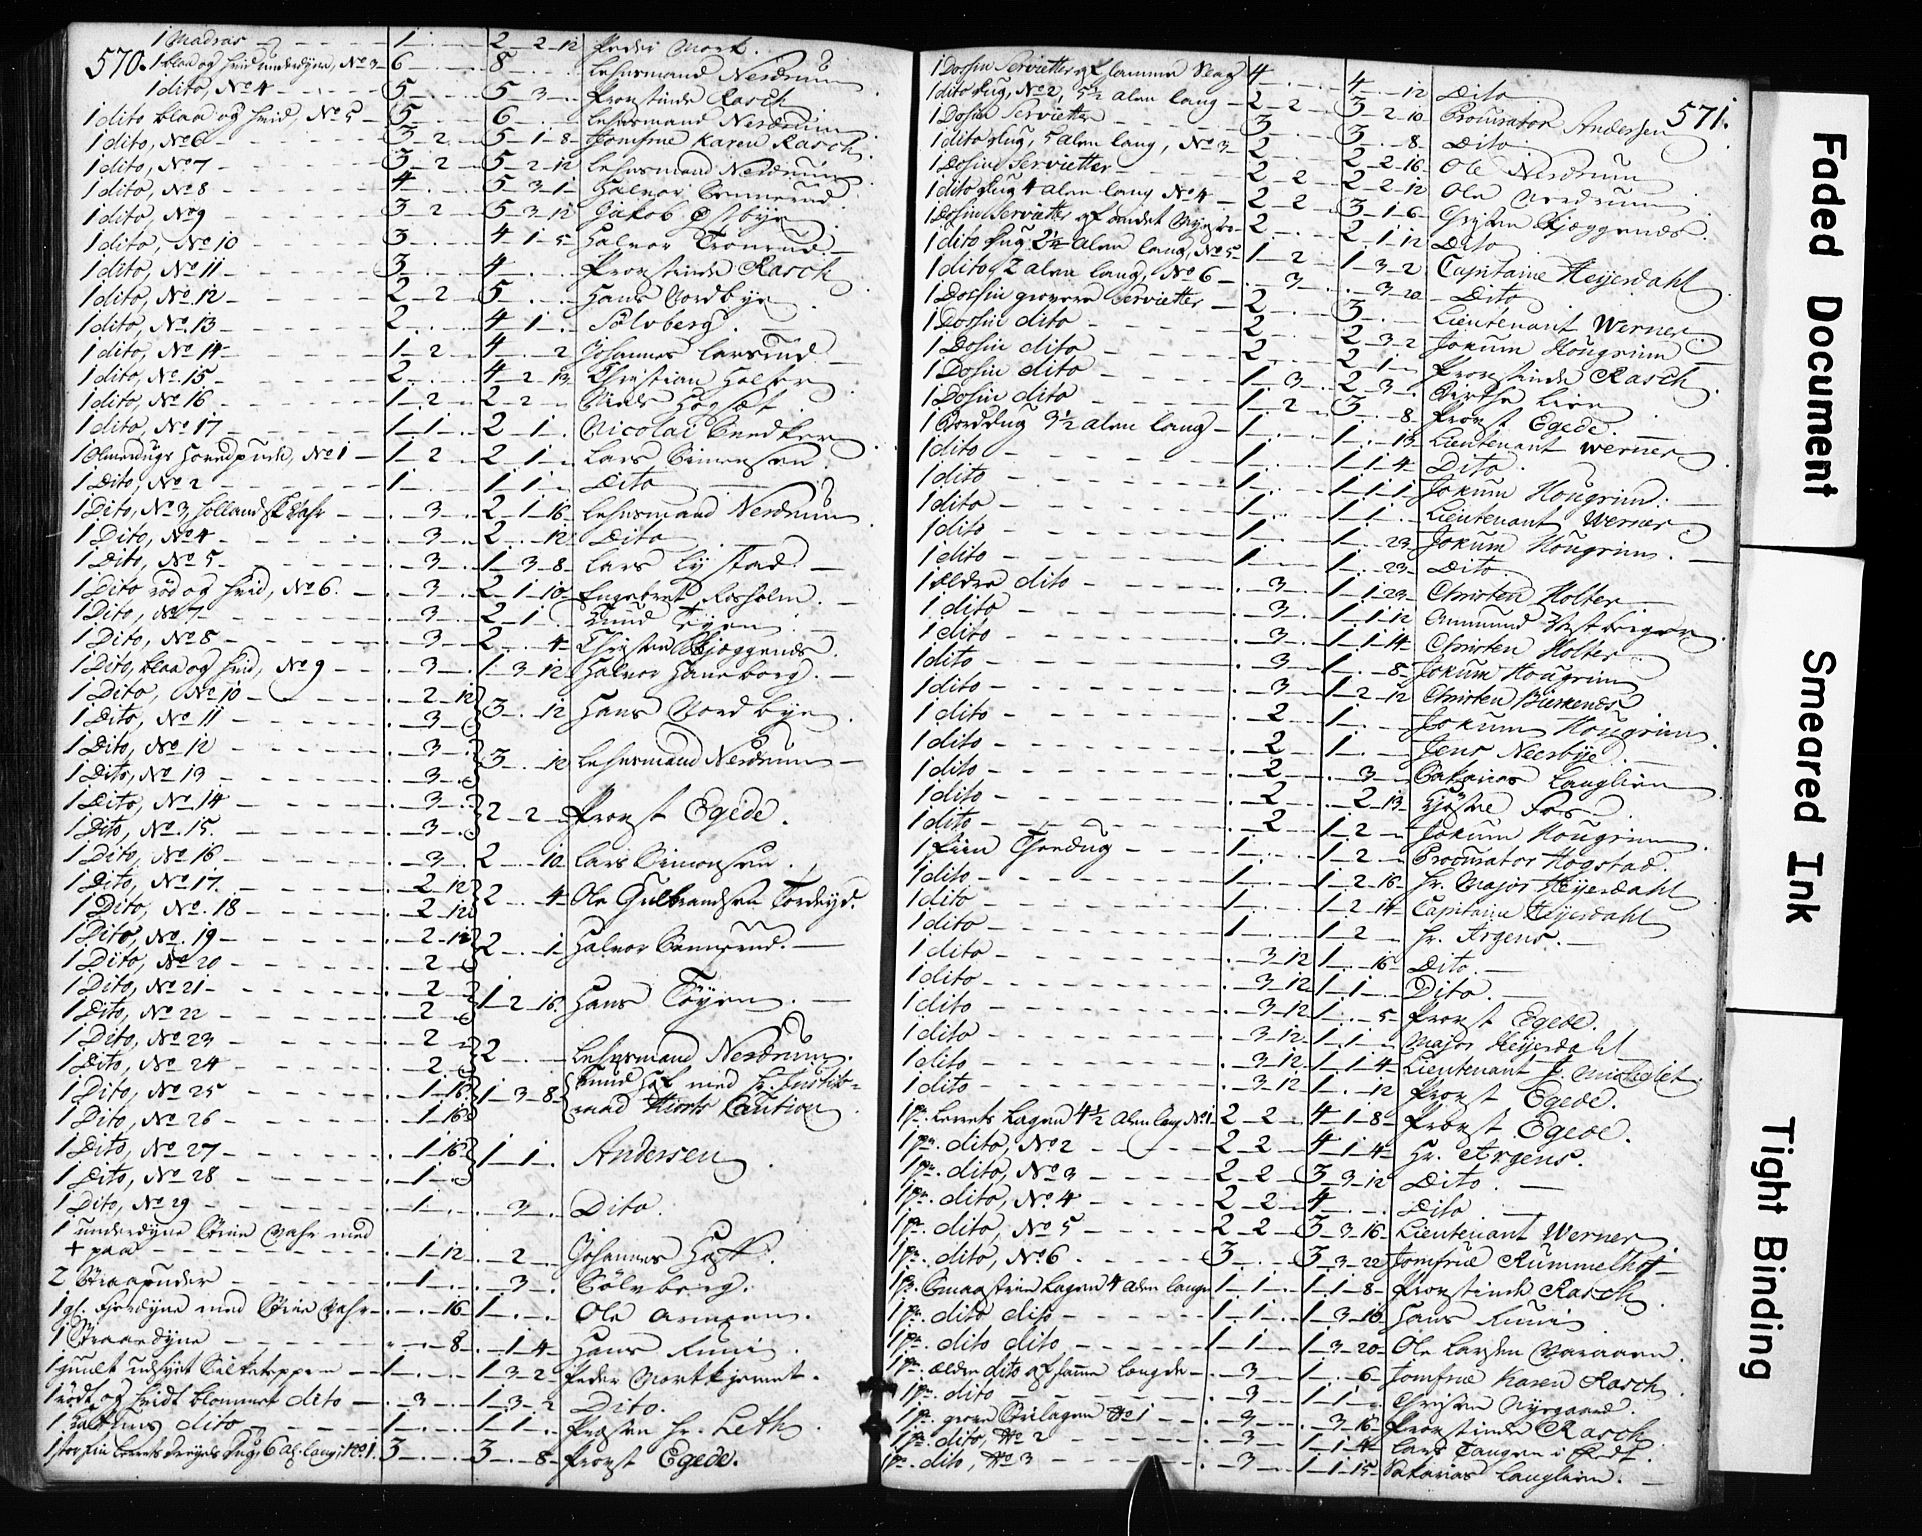 570.
1 Madras - - - 1 - . - 2 - 2 - 12 Peder Mork.
1 blaa og hvid underdyne, No 3 - 6 8 Lehnsmand Nerdrum
1 dito, No 4 - - - 5 5 - 3 - . Provstinde Rasch
1 dito blaa og hvid, No 5 - 5 6 Lehnsmand Nerdrum
1 dito, No 6 - - 3 - 2 5 - 1 - 8 Jomfrue Karen Rasch
1 dito, No 7 - - 3 - 2 5 - 2 - 12 Lehnsmand Nerdrum
1 dito, No 8 - - 4 5 - 3 - 1 Halvor
1 dito, No 9 - - 3 - 2 5 - 3 - 12 Jakob Østbye
1 dito, No 10 - - 3 4 - 1 - 5 Halvor Tronrud
1 dito, No 11 - - 3 4 Provstinde Rasch
1 dito, No 12 - - 2 - 2 5 Hans Nordbye
1 dito, No 13 - - 2 4 - 1 - . Sölvberg.
1 dito, No 14 - - 1 - 2 4 - . 2 Johannes Larsrud
1 dito, No 15 - - 2 4 - 2 - 13 Christian Holter
1 dito, No 16 - - 1 - 2 2 - 2 Niels Hogsæt
1 dito, No 17 - - 1 - 1 2 - 1 Nicolai Snedker
1 Olmerdugs Hovedpude, No 1 - 1 - 2 2 - 1 Lars Simensen
1 Dito, No 2 - - 1 1 - 1 Dito
1 Dito, No 3, Hollandsk Vahr - . - 3 2 - 1 - 16 Lehnsmand Nerdrum
1 Dito, No 4 - - . - 3 2 - . 12 Dito
1 Dito, No 5 - - . - 3 1 - 3 - 8 Lars Lystad.
1 Dito röd og hvid, No 6. - . 3 2 - 1 - 10 Engebret Roesholm
1 Dito, No 7 - - . - 3 2 - 1 Knud Tyen
1 Dito, No 8 - - . - 3 2 - . 4 Christen Skjæggends
1 Dito, blaa og hvid, No 9 - . - 3 1 - 3 - 12 Halvor Haneborg.
1 Dito, No 10 - - . - 2 - 12
1 Dito, No 11 - - . - 3 3 - . 12 Hans Nordbye
1 Dito, No 12 - - . - 3
1 Dito, No 13 - - . - 3 3 - . 12 Lehnsmand Nerdrum
1 Dito, No 14 - - . - 3
1 Dito, No 15. - - . - 3 2 - 2 Provst Egede.
1 Dito, No 16 - - . - 3 2 - . 10 Lars Simonsen.
1 Dito, No 17. - - . - 2 - 12
1 Dito, No 18 - - . - 2 - 12 2 - . 4 Ole Gulbrandsen Tordryd.
1 Dito, No 19 - - . - 2 - 12
1 Dito, No 20 - - . - 2 2 - . 1 Halvor
1 Dito, No 21 - - . - 2
1 Dito, No 22 - - . - 2 1 - 2 - 16 Hans Töyen.
1 Dito, No 23 - - . - 2
1 Dito, No 24 - - . - 2 2 Lehnsmand Nerdrum.
1 Dito, No 25 - - . - 1 - 16 Knud Hof med Hr. Justits-
1 Dito, No 26 - - . - 1 - 16 1 - 3 - 8 raad Hiorts Caution
1 Dito, No 27 - - . - 1 - 16
1 Dito, No 28 - - . - 1 1 - 1 Andersen
1 Dito, No 29 - - . - 1 . - 3 Dito.
1 underdyne Strie Vahr med
+ paa - - . - 1 - 12 . - 2 Johannes Hoff.
2 Straapuder - - . - 1 . - 3 Sölvberg.
1 gl. Fjerdyne med Strie Vahr - . - . 16 1 Ole
1 Straaedyne - - . - . 8 . - 1 - 4 Hans Funi.
1 guult udsyet Silketeppen - 1 1 - 3 - 2 Peder Mortkjernet.
1 rödt og hvidt blommet dito - . - 3 1 - 3 - 2 Dito.
1 dito - - 1 1 - 1 Præsten Hr. Leth
1 stor fin Lerrets Dreyels Dug, 6 Al. lang, No 1. 3 3 - . 8 Provst Egede.
571.
1 Dossin Servietter af samme Slag 4 4 - . 12 Dito
1 dito Dug, No 2, 5½ alen lang - 2 - 2 3 - 2 - 10 Procurator Andersen
1 Dosin Servietter - - 3 3 - . 8 Dito
1 dito Dug, 5 alen lang, No 3 - 2 2 - 2 - 16 Ole Nerdrum
1 Dosin Servietter - - 2 - 2 2 - 2 - 12 Ole Nordrum
1 dito Dug 4 alen lang No 4 - 2 - 2 3 - 1 - 6 Skjæggends.
1 Dosin Servietter af 2 2 - 1 - 12 Dito
1 dito Dug 2½ alen lang, No 5 - 1 - 2 1 - 3 - 2 Capitaine Heyerdahl
1 dito 2 alen lang, No 6 - . 3 . - 3 - 20 Dito
1 Dossin grovere Servietter - 2 3 Lieutenant Werner
1 Dossin dito - - 2 2 - 3 - 2 Jokum Hougrim
1 Dosin dito - - 2 2 - 1 Provstinde Rasch
1 Dosin dito - - 1 - 3 2 - 3 Birthe Lien
1 Dosin dito - - 1 - 2 3 - . 8 Provst Egede
1 Borddug 3½ alen lang - 1 1 - . 13 Lieutenant Werner
1 dito - - 1 1 - 1 - 4 Dito.
1 dito - - 1 1 - 1 - 1 Jokum Hougrim.
1 dito - - 1 1 - 1 Lieutenant Werner.
1 dito - - 1 1 - . 23 Jokum Hougrim
1 dito - - 1 1 - . 23 Dito
1 ældre dito - - . 3 1 - 1 - 23 Christen Holter
1 dito - - . 3 1 - 1 - 12 Ammund
1 dito - - . 3 1 - 1 - 14 Christen Holter
1 dito - - . 3 1 - . 8 Jokum Hougrim
1 dito - - . 3 1 - 2 - 12 Christen Bierkends
1 dito - - . - 2 1 - . Jokum Hougrim
1 dito - - . - 2 1 - . Jens Neerbye
1 dito - - . - 2 . - 3 Sakarias Langlien
1 dito - - . - 2 . - 2 - 13 Gjöstne Fos
1 dito - - . - 2 1 - 2 Jokum Hougrim
1 Liin Thedug - - 1 1 - 2 Procurator Hogstad.
1 dito - - 1 1 - 2 - 16 Hr. Major Heyerdahl
1 dito - - 1 1 - 2 - 14 Capitaine Heyerdahl
1 dito - - 1 1 - 2 Hr. Argens.
1 dito - - . - 3 - 12 1 - . 16 Dito.
1 dito - - . - 3 - 12 1 - 1 Dito.
1 dito - - . - 3 - 12 1 - . 5 Provst Egede.
1 dito - - . - 3 - 12 1 - 1 Major Heyerdahl
1 dito - - . - 3 - 12 1 - 1 - 4 Lieutenant J. Michelet
1 dito - - . - 3 - 12 1 - . 12 Provst Egede.
1 pr. Lerrets Lagen 4½ Alen lang No 1 2 - 2 4 - 1 - 8 Provst Egede.
1 pr. dito, No 2 - - 2 - 2 4 - 1 - 4 Hr. Argens.
1 pr. dito, No 3 - - 2 - 2 3 - 3 - 12 Dito.
1 pr. dito, No 4 - - 2 - 2 4 Dito
1 pr. dito, No 5 - - 2 - 2 3 - 3 - 16 Lieutenant Werner
1 pr. dito, No 6 - - 3 3 - 3 - 22 Jomfrue Rummelhof
1 pr. Smaastrie Lagen 4 alen lange 1 - 1 1 - 1 - 8 Provstinde Rasch
1 pr. dito dito - - 1 - 1 1 - 3 - 16 Hans Funi
1 pr. dito dito - - 1 - 1 1 - 3 - 20 Ole Larsen Varaaen.
1 pr. ældre dito af samme Længde - . 3 1 - . 6 Jomfrue Karen Rasch
1 pr. dito - - . 3 1 - 1 Christen Nygaard.
1 pr. grove Strilagen No 1 - . 3 . 3 - 16 Provstinde Rasch
1 pr. dito, No 2 - - . 3 1 - 1 - 4 Lars Tangen i
1 pr. dito, No 3 - - . 3 1 - 1 - 15 Sakarias Langlien.
Faded Document
Smeared Ink
Tight Binding